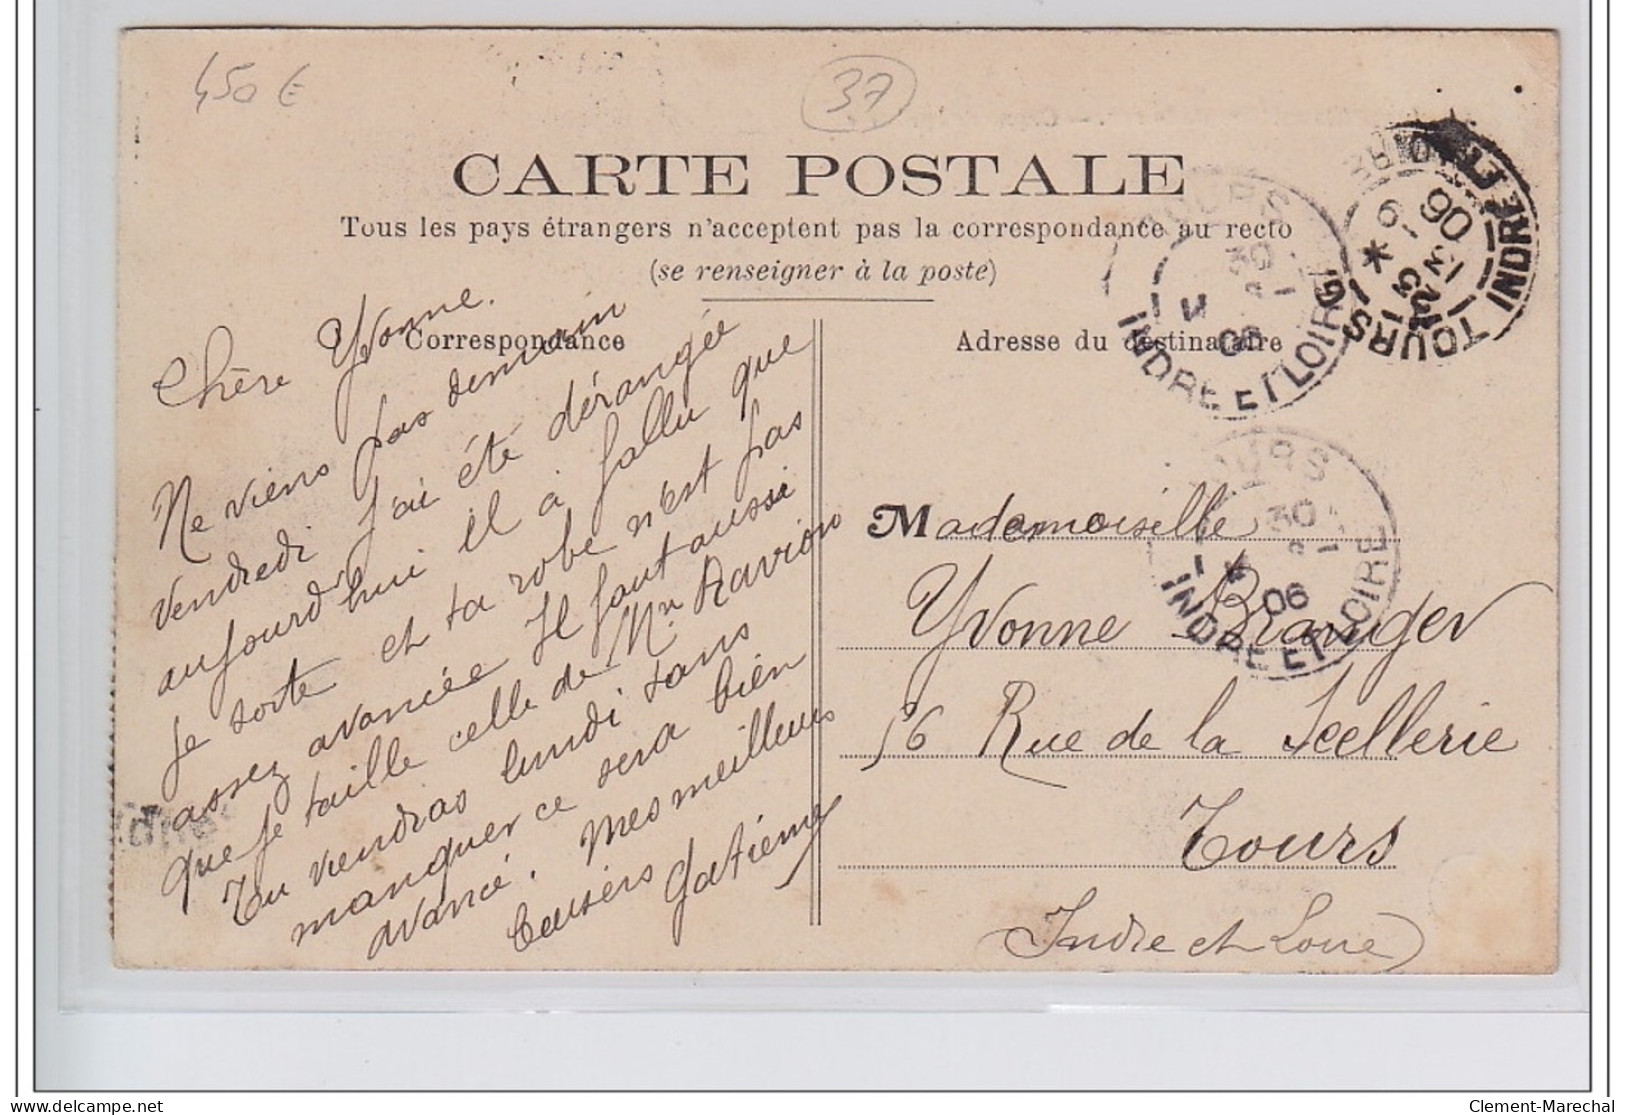 450 €
37
CARTE POSTALE
Tous les pays étrangers n'acceptent pas la correspondance au recto
(se renseigner à la poste)
Correspondance
Chère Yvonne.
Ne viens pas demain
vendredi j'ai été dérangée
aujourd'hui il a fallu que
je sorte et ta robe n'est pas
assez avancée Il faut aussi
que je taille celle de Mme Ravion
Tu viendras lundi sans
manquer ce sera bien
avancé. Mes meilleurs
baisers Gatienne
Adresse du destinataire
Mademoiselle
Yvonne Branger
56 Rue de la Scellerie
Tours
Indre et Loire
TOURS
30
1
06
INDRE ET LOIRE
TOURS INDRE ET LOIRE
06
TOURS
30
06
INDRE ET LOIRE
delcampe.net
Clement-Marechal